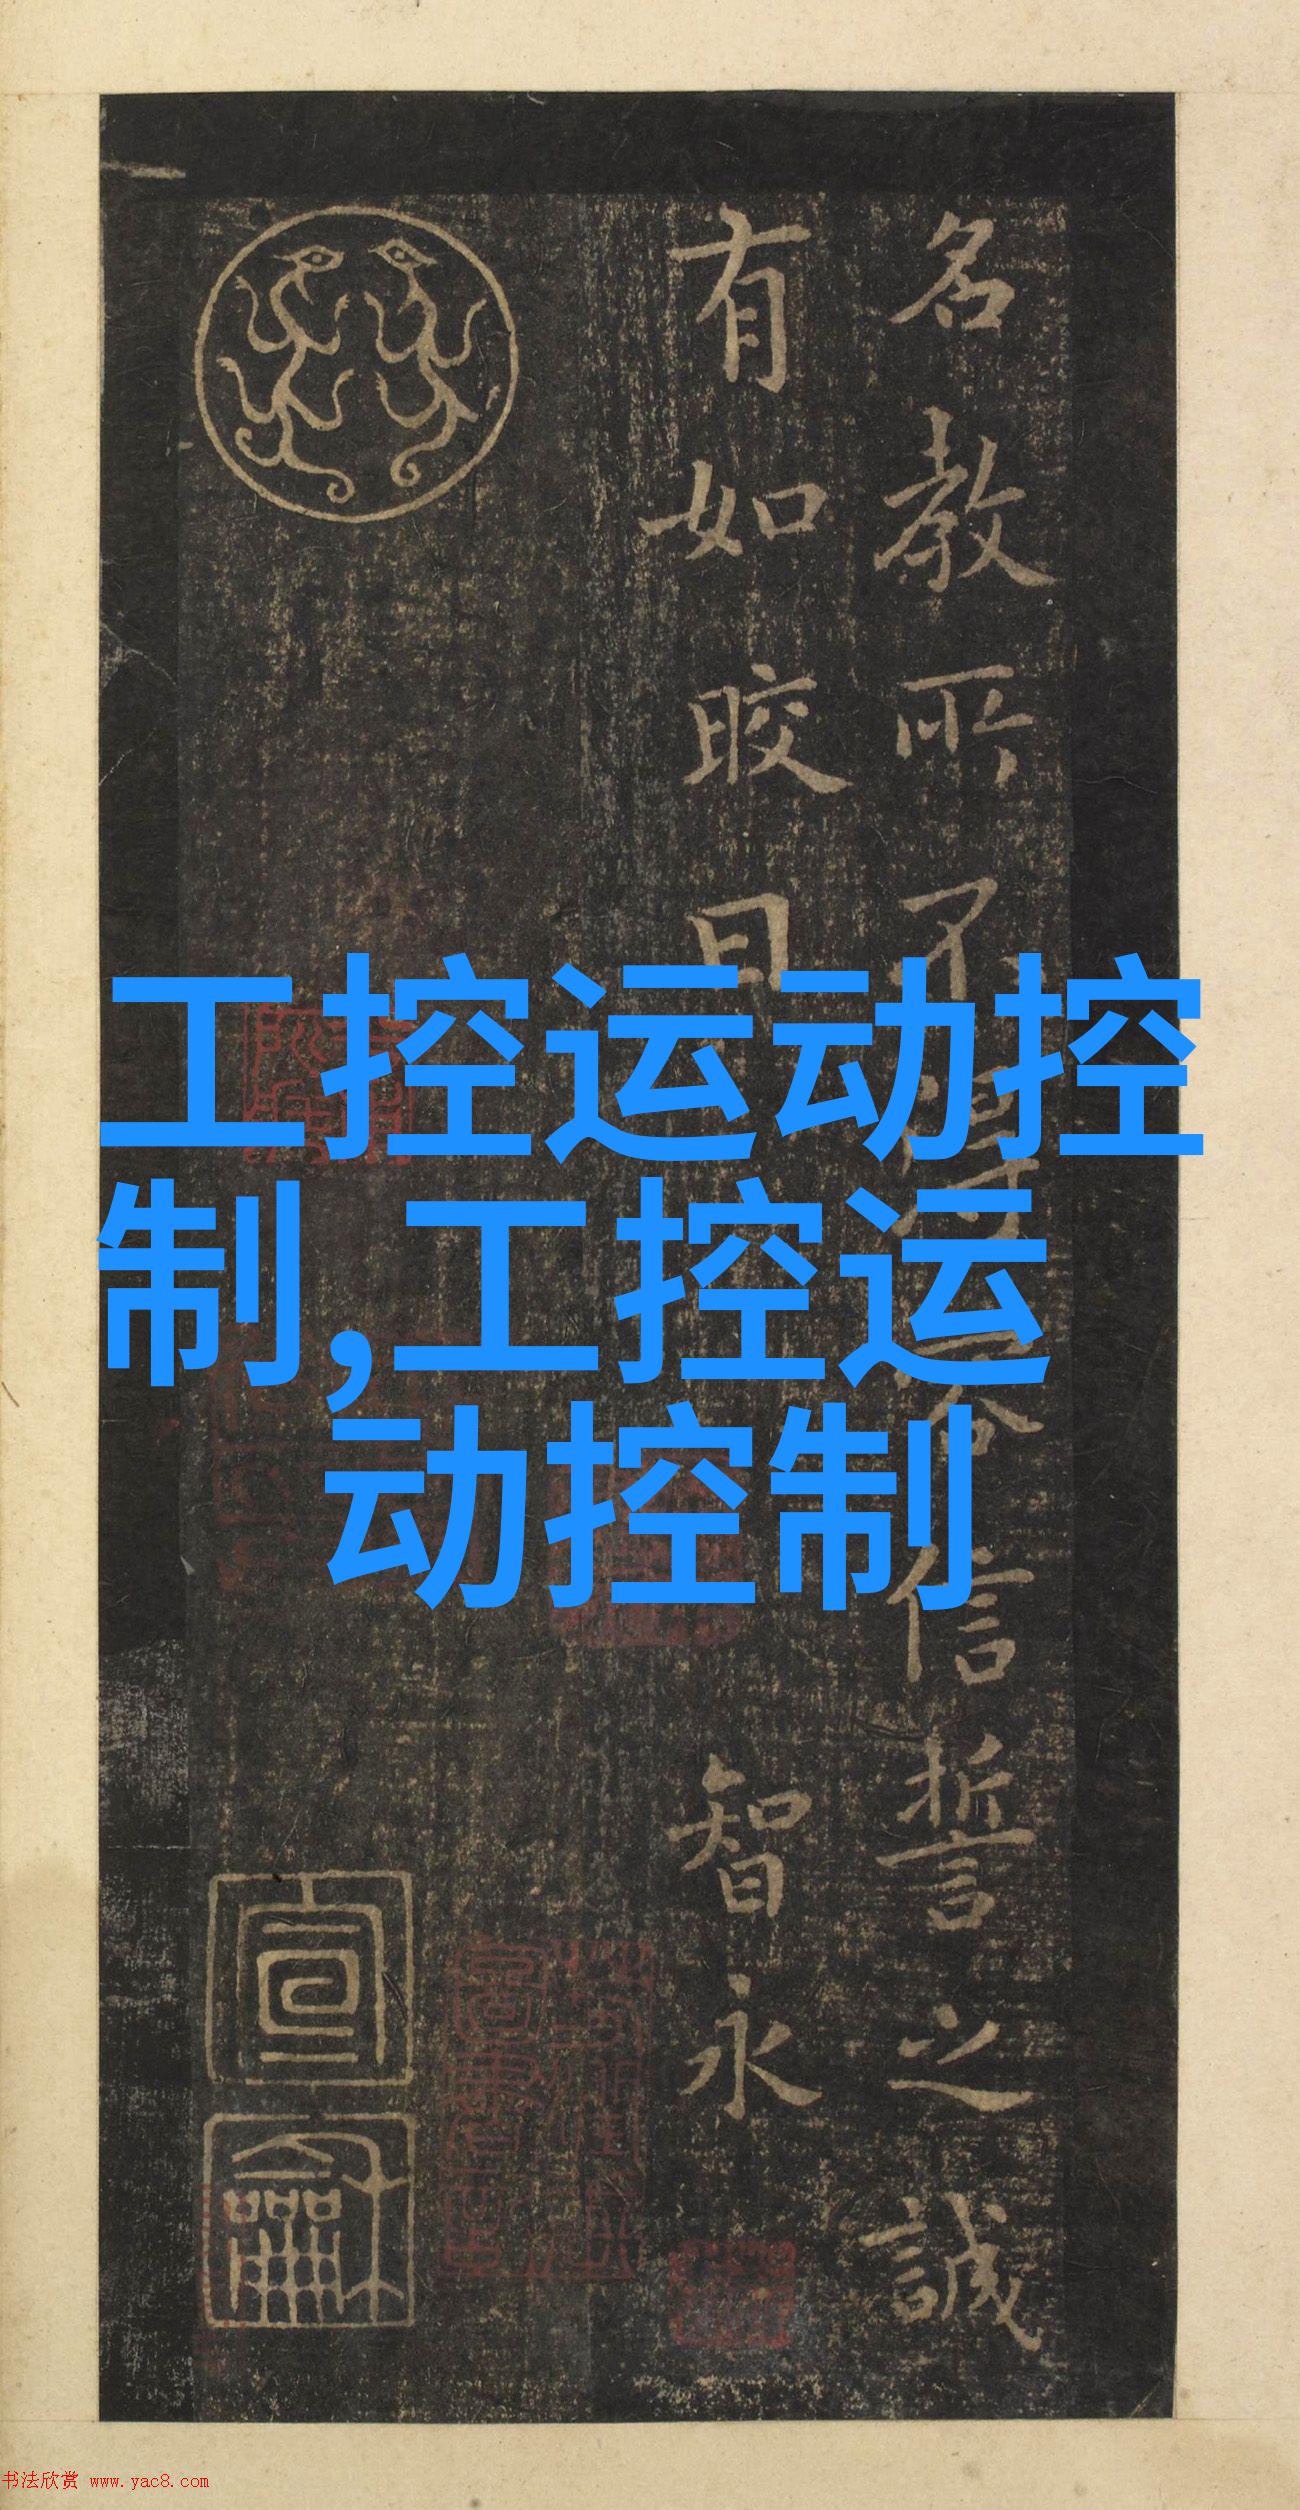 名教所不得容信誓之誠
有如晈日
智永
工控运动控
制,工控运
动控制
宣
龢
书法欣赏 www.yac8.com